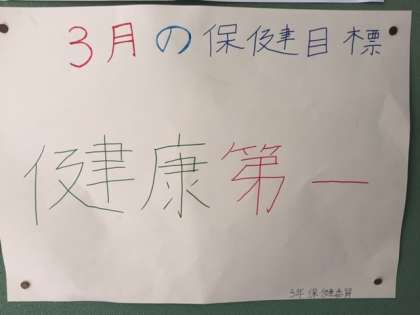 3月の保健目標
健康第一
3年 保健委員